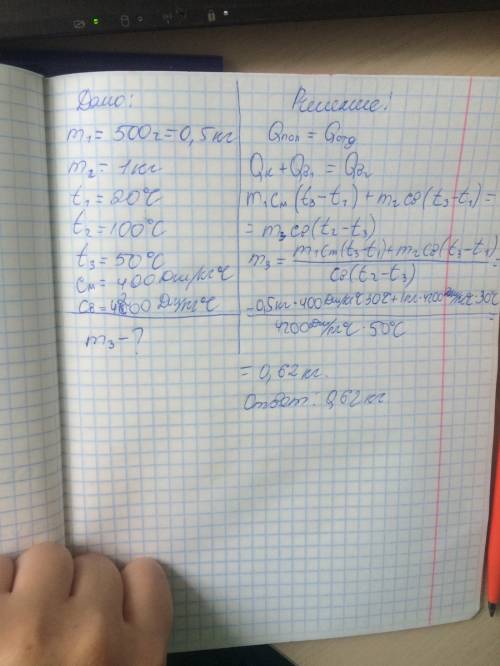 Дано:
m₁ = 500г = 0,5кг
m₂ = 1кг
t₁ = 20°C
t₂ = 100°C
t₃ = 50°C
cм = 400 Дж/кг°C
cв = 4200 Дж/кг°C
m₃ - ?
Решение:
Qпол = Qотд
Qк + Qв₁ = Qв₂
m₁cм(t₃-t₁) + m₂cв(t₃-t₁) =
= m₃cв(t₂-t₃)
m₃ = m₁cм(t₃-t₁) + m₂cв(t₃-t₁) / cв(t₂-t₃) =
= 0,5кг·400Дж/кг°C·30°C + 1кг·4200Дж/кг°C·30°C / 4200Дж/кг°C·50°C =
= 0,62кг.
Ответ: 0,62кг